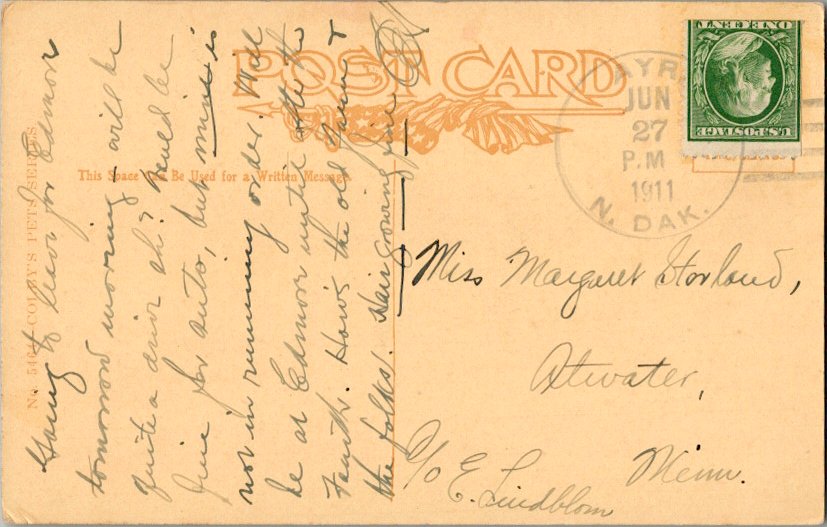 POST CARD
This Space Can Be Used for a Written Message.
No. 5464—COLBY'S PETS SERIES
Going to leave for Edmore
tomorrow morning - will be
quite a drive eh? Would be
fine for auto, but mine is
not in running order. Will
be at Edmore until after the
Fourth. How's the old Gunn &
the folks. Hair growing fine
AYR
JUN
27
P.M
1911
N. DAK.
U.S. POSTAGE
ONE CENT
Miss Margaret Storland,
Atwater,
Minn.
c/o E. Lindblom